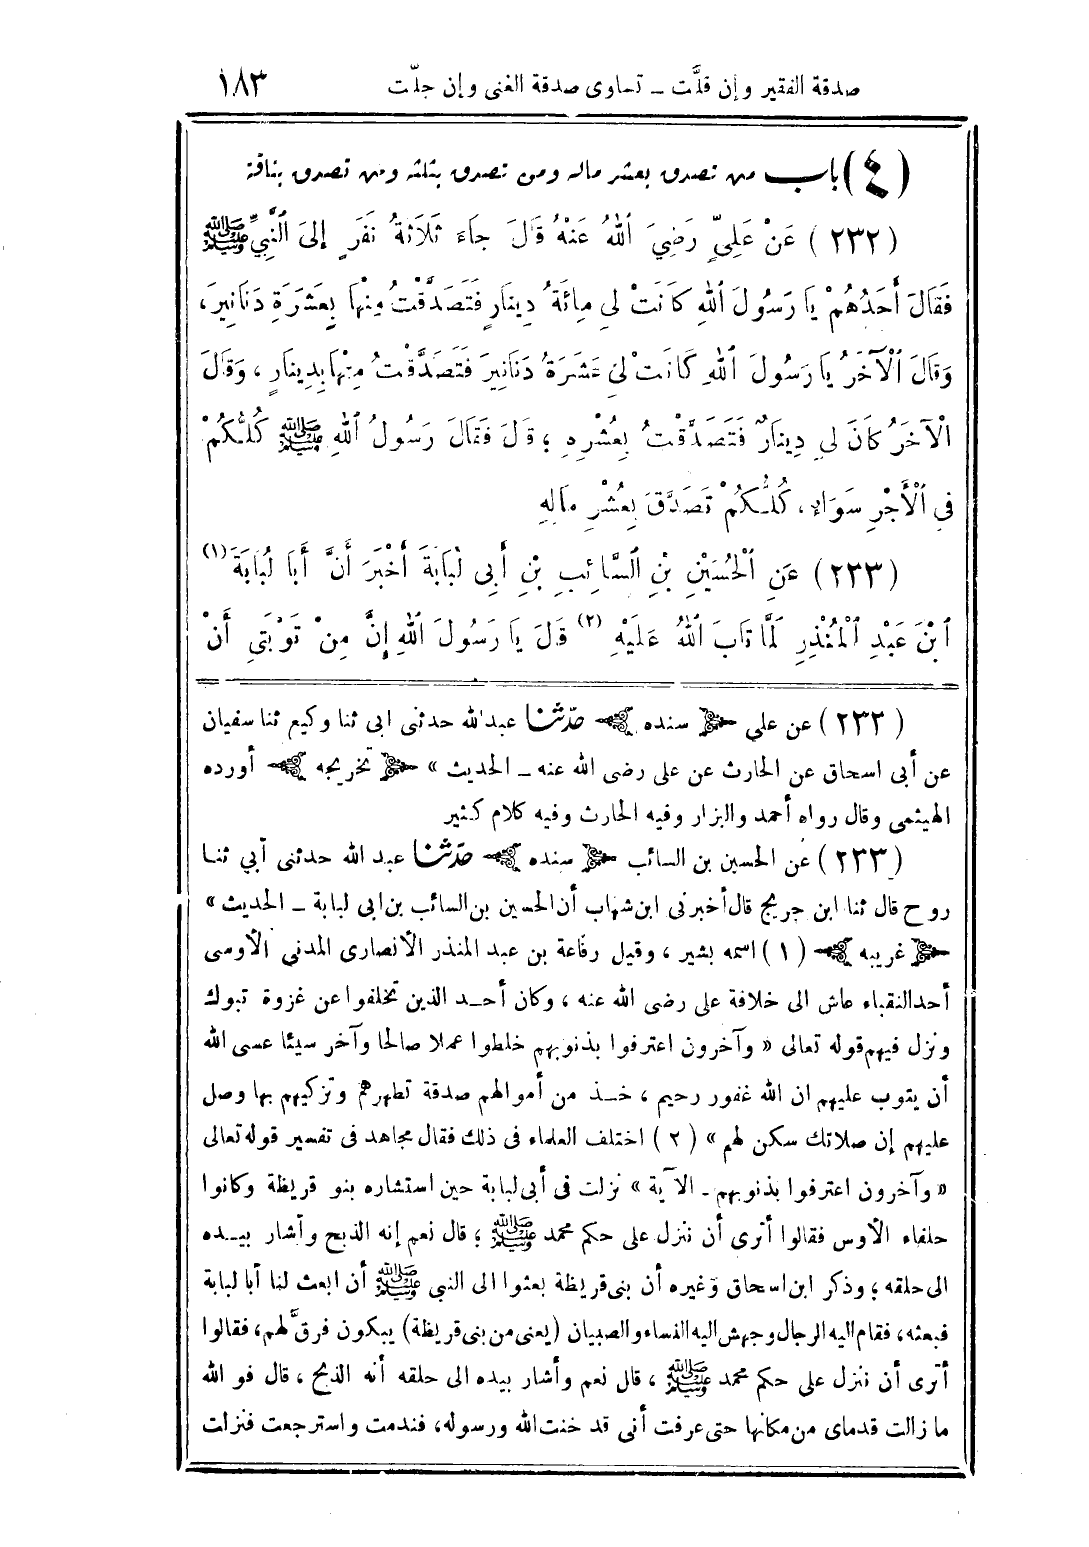 صدقة الفقير وإن قلَّت ــ تساوى صدقة الغنى وإن جلّت ١٨٣
(٤) باب من تصدق بعشر ماله ومن تصدق بثلثه ومن تصدق بناقة
(٢٣٢) عَنْ عَلِيٍّ رَضِيَ اللهُ عَنْهُ قَالَ جَاءَ ثَلَاثَةُ نَفَرٍ إِلَى النَّبِيِّ ﷺ
فَقَالَ أَحَدُهُمْ يَا رَسُولَ اللهِ كَانَتْ لِي مِائَةُ دِينَارٍ فَتَصَدَّقْتُ مِنْهَا بِعَشَرَةِ دَنَانِيرَ،
وَقَالَ الْآخَرُ يَا رَسُولَ اللهِ كَانَتْ لِي عَشَرَةُ دَنَانِيرَ فَتَصَدَّقْتُ مِنْهَا بِدِينَارٍ، وَقَالَ
الْآخَرُ كَانَ لِي دِينَارٌ فَتَصَدَّقْتُ بِعُشْرِهِ ؛ قَالَ فَقَالَ رَسُولُ اللهِ ﷺ كُلُّكُمْ
فِي الْأَجْرِ سَوَاءٌ، كُلُّكُمْ تَصَدَّقَ بِعُشْرِ مَالِهِ
(٢٣٣) عَنِ الْحُسَيْنِ بْنِ السَّائِبِ بْنِ أَبِي لُبَابَةَ أَخْبَرَ أَنَّ أَبَا لُبَابَةَ (١)
ابْنَ عَبْدِ الْمُنْذِرِ لَمَّا تَابَ اللهُ عَلَيْهِ (٢) قَالَ يَا رَسُولَ اللهِ إِنَّ مِنْ تَوْبَتِي أَنْ
(٢٣٢) عن علي ﴿ سنده ﴾ حدّثنا عبد الله حدثنى ابى ثنا وكيع ثنا سفيان
عن أبى اسحاق عن الحارث عن على رضى الله عنه ــ الحديث » ﴿ تخريجه ﴾ أورده
الهيثمى وقال رواه أحمد والبزار وفيه الحارث وفيه كلام كثير
(٢٣٣) عن الحسين بن السائب ﴿ سنده ﴾ حدّثنا عبد الله حدثنى أبي ثنا
روح قال ثنا ابن جريج قال أخبرنى ابن شهاب أن الحسين بن السائب بن ابى لبابة ــ الحديث »
﴿ غريبه ﴾ (١) اسمه بشير، وقيل رفاعة بن عبد المنذر الأنصارى المدنى الأوسى
أحد النقباء عاش الى خلافة على رضى الله عنه، وكان أحد الذين تخلفوا عن غزوة تبوك
ونزل فيهم قوله تعالى « وآخرون اعترفوا بذنوبهم خلطوا عملا صالحا وآخر سيئا عسى الله
أن يتوب عليهم ان الله غفور رحيم، خذ من أموالهم صدقة تطهرهم وتزكيهم بها وصل
عليهم إن صلاتك سكن لهم » (٢) اختلف العلماء فى ذلك فقال مجاهد فى تفسير قوله تعالى
« وآخرون اعترفوا بذنوبهم ــ الآية » نزلت فى أبى لبابة حين استشاره بنو قريظة وكانوا
حلفاء الأوس فقالوا أترى أن ننزل على حكم محمد ﷺ ؛ قال نعم إنه الذبح وأشار بيده
الى حلقه ؛ وذكر ابن اسحاق وغيره أن بنى قريظة بعثوا الى النبى ﷺ أن ابعث لنا أبا لبابة
فبعثه، فقام اليه الرجال وجهش اليه النساء والصبيان (يعنى من بنى قريظة) يبكون فرقَّ لهم، فقالوا
أترى أن ننزل على حكم محمد ﷺ، قال نعم وأشار بيده الى حلقه أنه الذبح، قال فو الله
ما زالت قدماى من مكانها حتى عرفت أنى قد خنت الله ورسوله، فندمت واسترجعت فنزلت